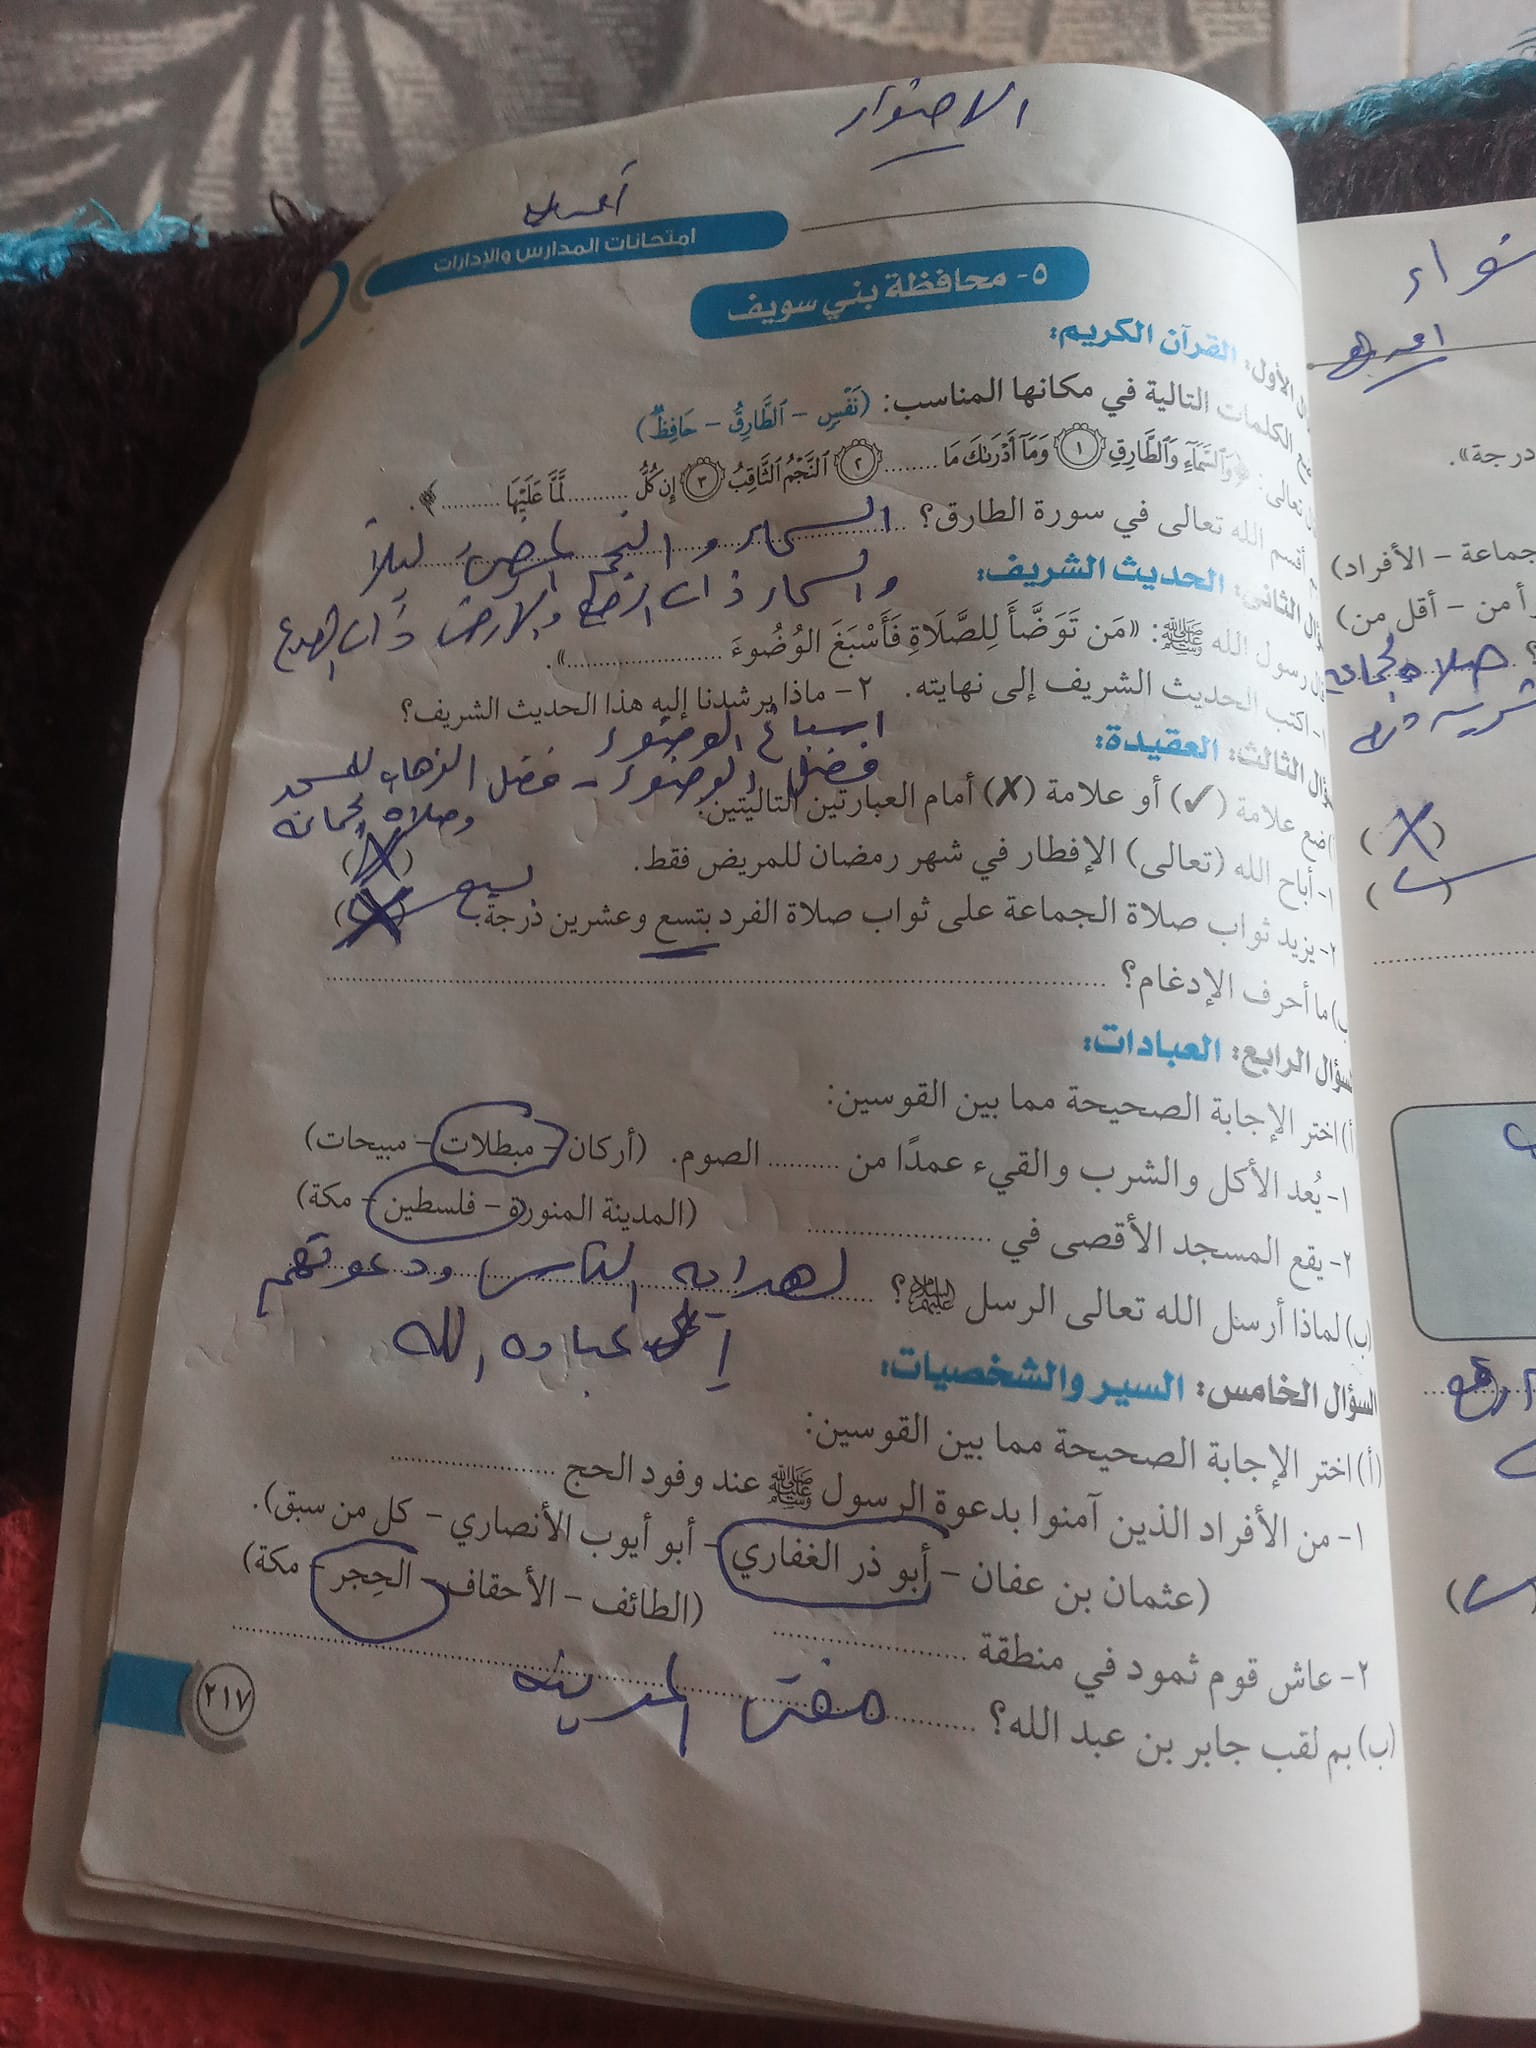 الاضواء
امتحانات المدارس والإدارات
٥- محافظة بني سويف
الأول: القرآن الكريم:
الكلمات التالية في مكانها المناسب: (نَفْسٍ - ٱلطَّارِقُ - حَافِظٌ)
تعالى: ﴿وَٱلسَّمَآءِ وَٱلطَّارِقِ ١ وَمَآ أَدْرَىٰكَ مَا ......... ٢ ٱلنَّجْمُ ٱلثَّاقِبُ ٣ إِن كُلُّ .......... لَّمَّا عَلَيْهَا ..........﴾.
أقسم الله تعالى في سورة الطارق؟ السماء و النجم المضئ ليلاً
والسماء ذات الرجع والارض ذات الصدع
الثاني: الحديث الشريف:
رسول الله ﷺ: «مَن تَوَضَّأَ لِلصَّلَاةِ فَأَسْبَغَ الوُضُوءَ ....................».
١- اكتب الحديث الشريف إلى نهايته. ٢- ماذا يرشدنا إليه هذا الحديث الشريف؟
اسباغ الوضوء
فضل الوضوء - فضل الذهاب للمسجد
وصلاه الجماعه
الثالث: العقيدة:
ضع علامة (✓) أو علامة (✗) أمام العبارتين التاليتين:
١- أباح الله (تعالى) الإفطار في شهر رمضان للمريض فقط. (X)
٢- يزيد ثواب صلاة الجماعة على ثواب صلاة الفرد بتسع وعشرين درجة. سبع (X)
ب) ما أحرف الإدغام؟ ....................
السؤال الرابع: العبادات:
(أ) اختر الإجابة الصحيحة مما بين القوسين:
١- يُعد الأكل والشرب والقيء عمدًا من .......... الصوم. (أركان - مبطلات - مبيحات)
٢- يقع المسجد الأقصى في .................... (المدينة المنورة - فلسطين - مكة)
(ب) لماذا أرسل الله تعالى الرسل عليهم السلام؟ لهدايه الناس ودعوتهم
إلى عباده الله
السؤال الخامس: السير والشخصيات:
(أ) اختر الإجابة الصحيحة مما بين القوسين:
١- من الأفراد الذين آمنوا بدعوة الرسول ﷺ عند وفود الحج ....................
(عثمان بن عفان - أبو ذر الغفاري - أبو أيوب الأنصاري - كل من سبق).
٢- عاش قوم ثمود في منطقة .................... (الطائف - الأحقاف - الحِجر - مكة)
(ب) بم لقب جابر بن عبد الله؟ مفتى المدينه
٢١٧
درجة».
جماعة - الأفراد)
أ من - أقل من)
صلاه الجماعه
(X)